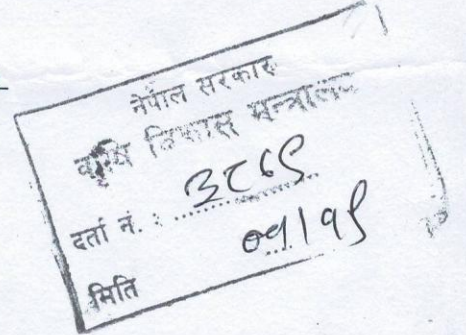 नेपाल सरकार
कृषि विकास मन्त्रालय
दर्ता नं. : ३८६९
मिति ०९।१९